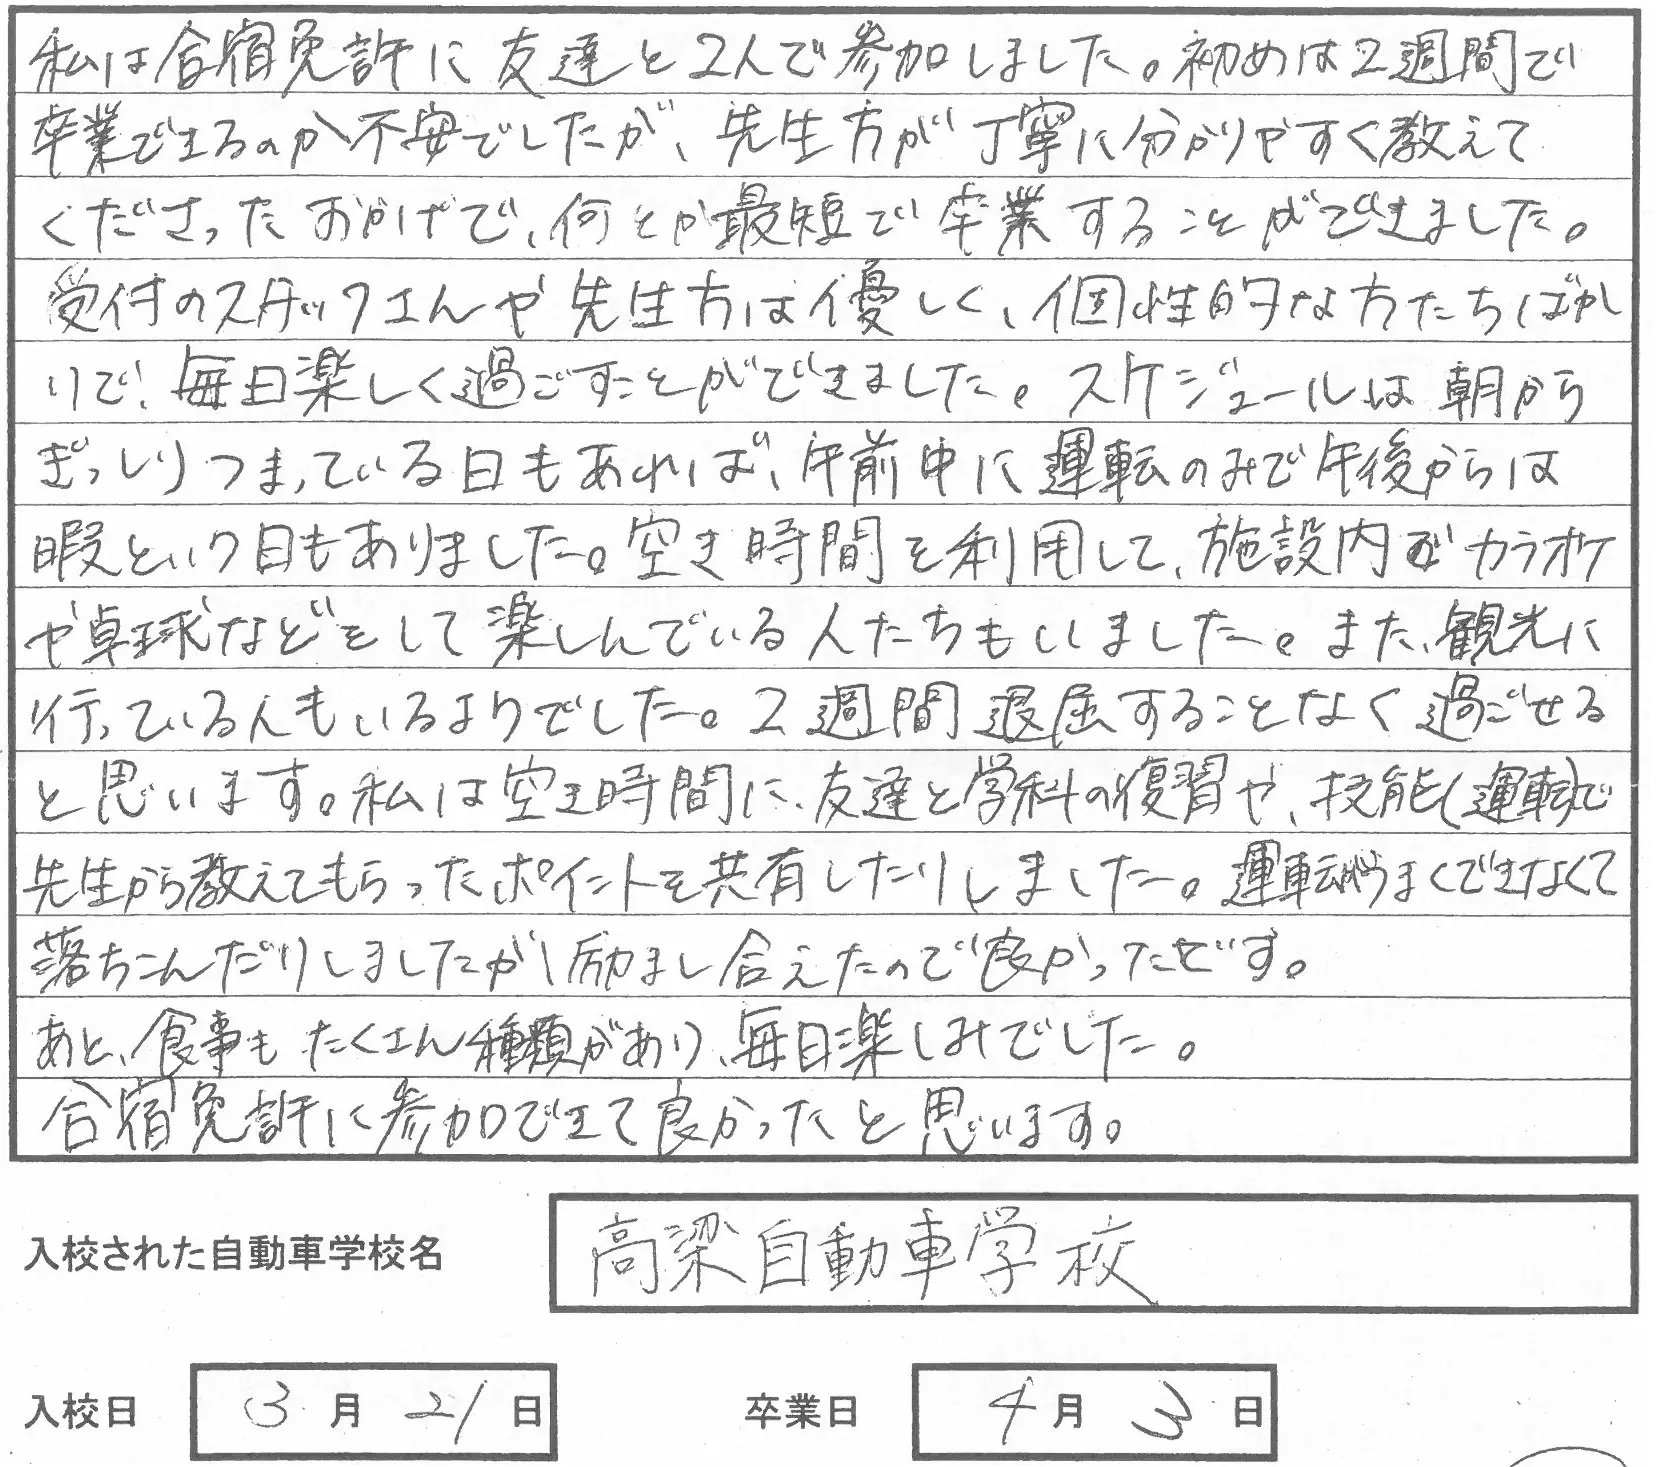 私は合宿免許に友達と2人で参加しました。初めは2週間で
卒業できるのか不安でしたが、先生方が丁寧に分かりやすく教えて
くださったおかげで、何とか最短で卒業することができました。
受付のスタッフさんや先生方は優しく、個性的な方たちばか
りで、毎日楽しく過ごすことができました。スケジュールは朝から
ぎっしりつまっている日もあれば、午前中に運転のみで午後からは
暇という日もありました。空き時間を利用して、施設内でカラオケ
や卓球などをして楽しんでいる人たちもいました。また、観光に
行っている人もいるようでした。2週間退屈することなく過ごせる
と思います。私は空き時間に、友達と学科の復習や、技能(運転)で
先生から教えてもらったポイントを共有したりしました。運転がうまくできなくて
落ちこんだりしましたが、励まし合えたので良かったです。
あと、食事もたくさん種類があり、毎日楽しみでした。
合宿免許に参加できて良かったと思います。
入校された自動車学校名 高梁自動車学校
入校日 3月21日 卒業日 4月3日